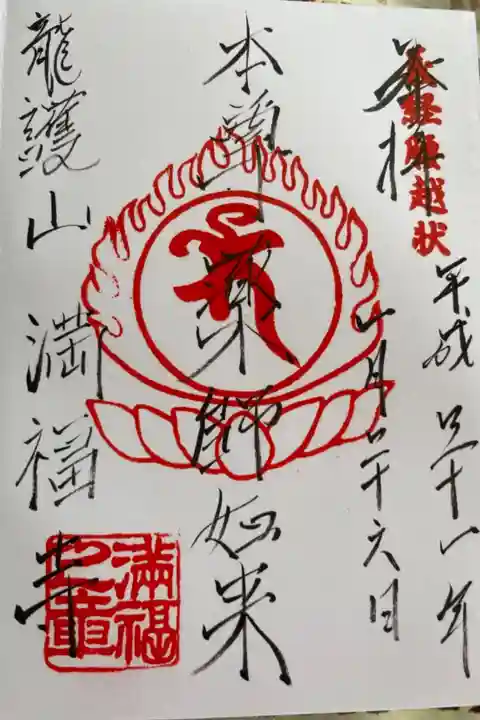 義経腰越状
奉拝
平成二十八年
月二十六日
本尊薬師如来
龍護山満福寺
満福